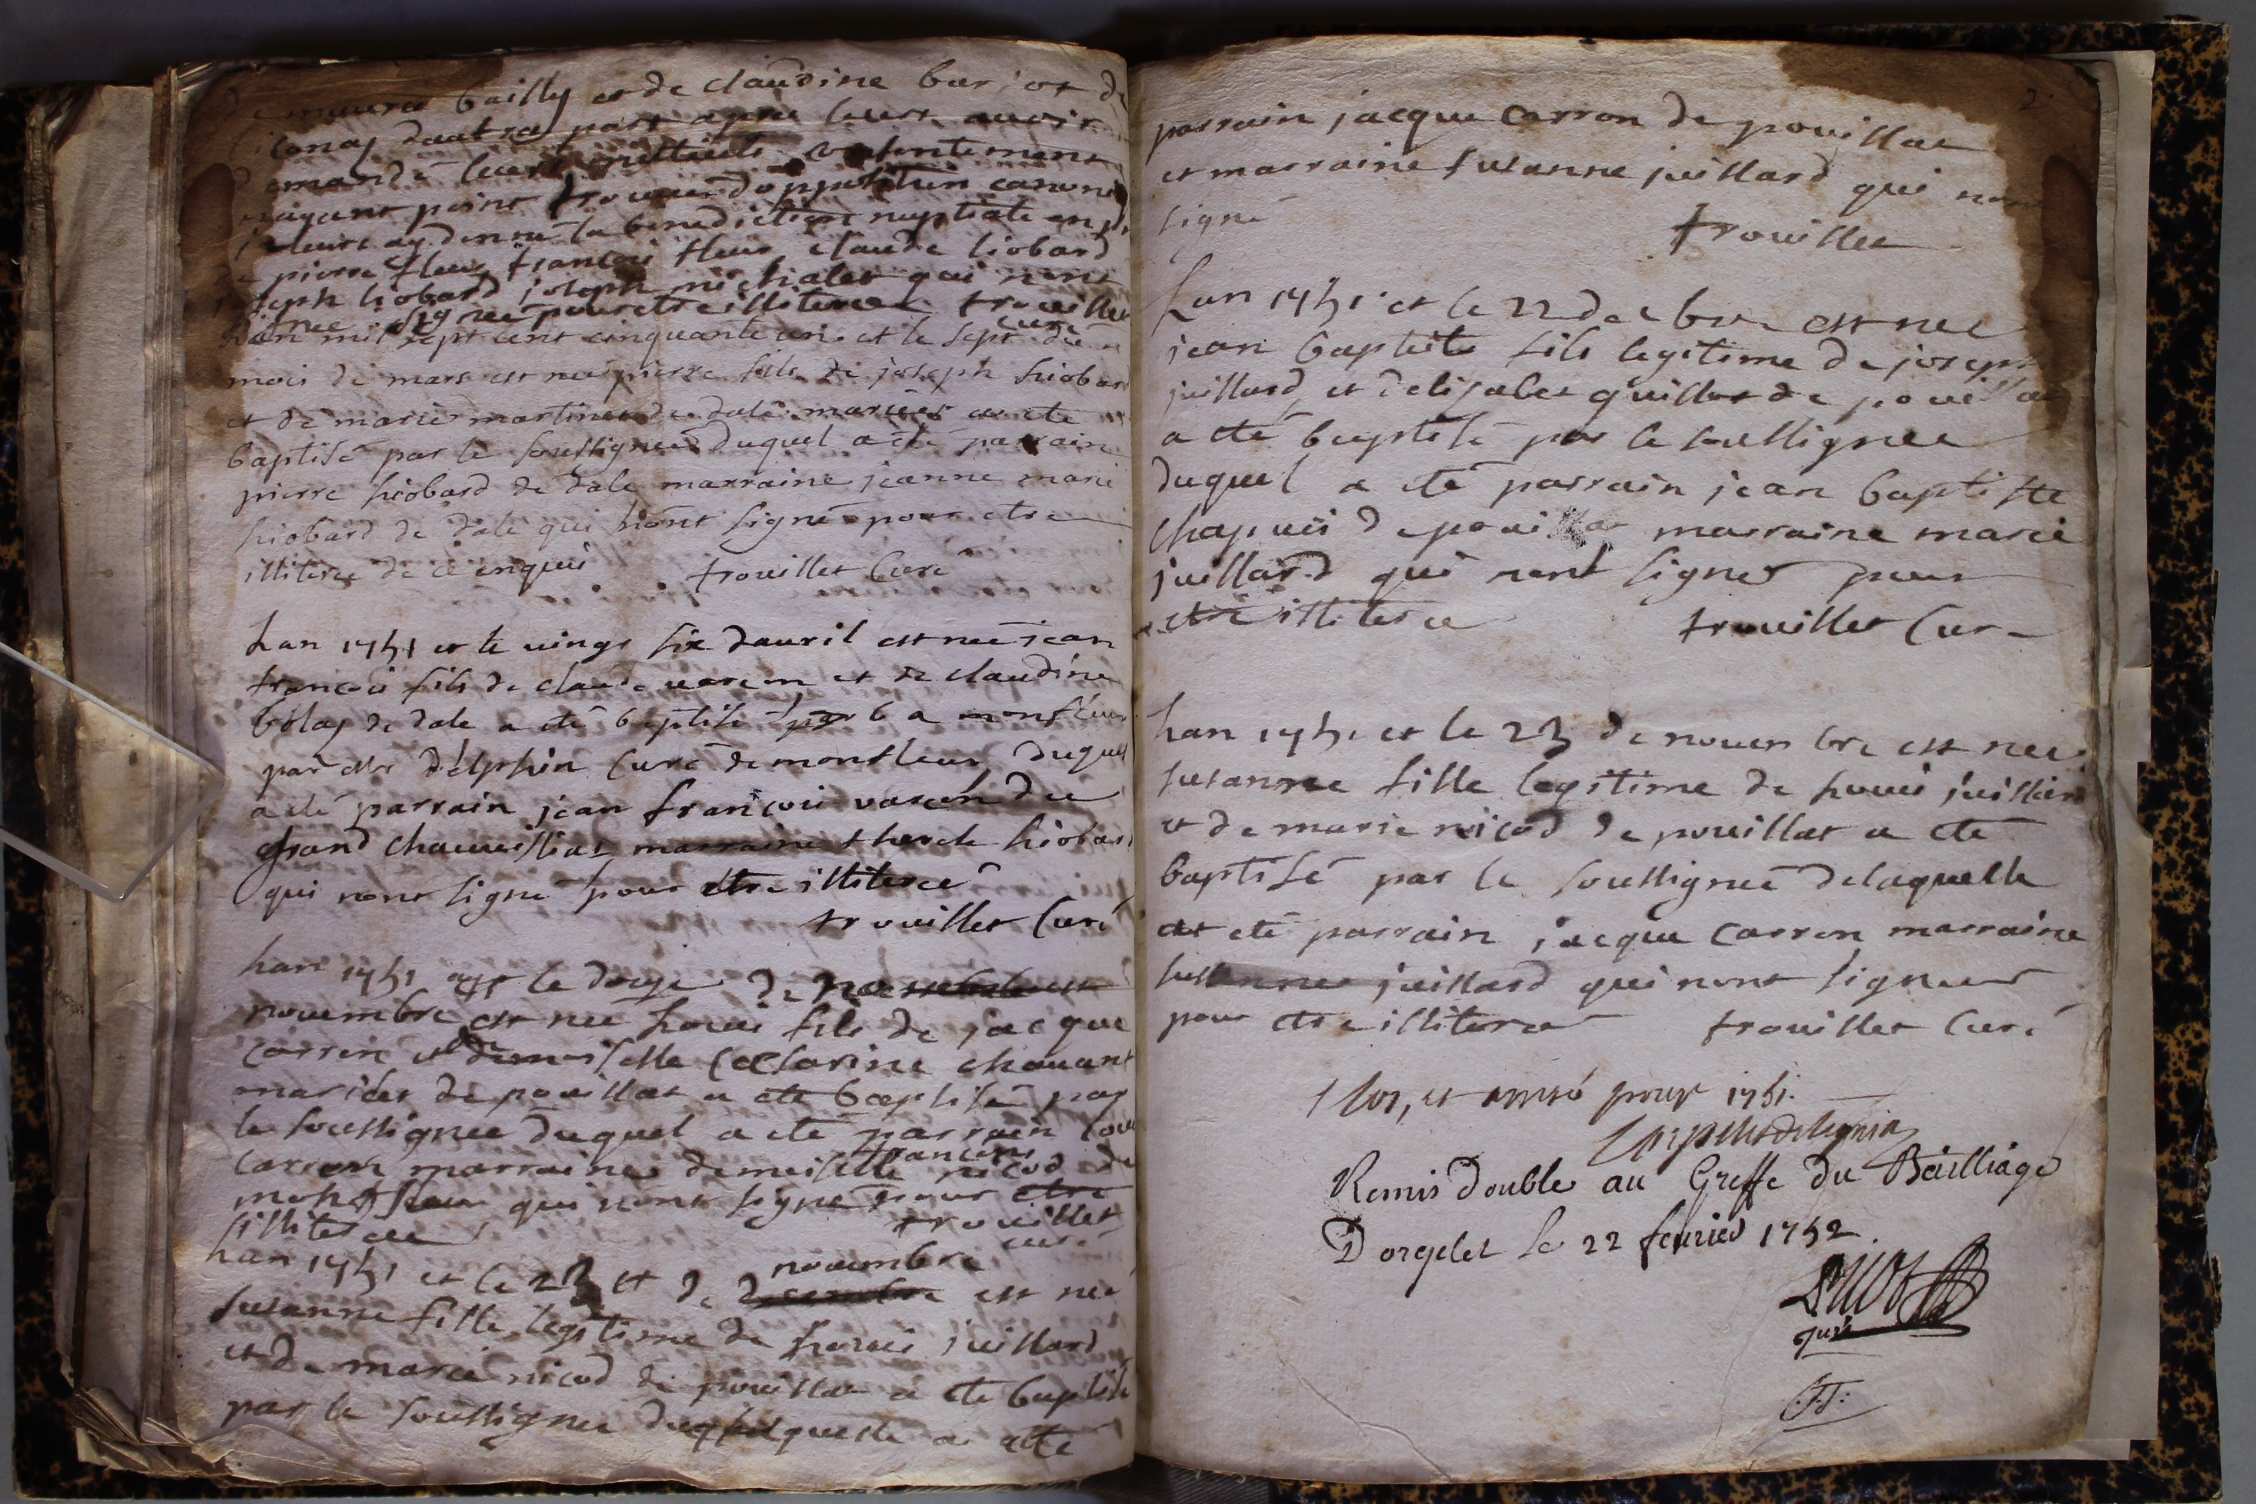 bailly et de claudine bariot de
dautre part apres leurs avoir
emandé leurs mutuels consentement
nayant point trouver doppositiin canoni
jeleurs ay donnné la benediction nuptiale en
pierre fleur francois fleur claude liobard
joseph liobard joseph michalet qui nont
signee pour etre illiteree trouillet
curé
lan mil sept cent cinquante un et le sept du
mois de mars est neé pierre fils de joseph liobar
et de marie martinet de dale mariées a ete
baptisé par le soussignee duquel a été parrain
pierre liobard de dale marraine jeanne marie
liobard de dale qui nont signé pour etre
illiteree de ce enquis trouillet Curé
Lan 1751 et le vingt six dauril est neé jean
francois fils de claude et de claudine
bolay de dale a eté baptisé a monfleur
par mr délphin Curé de monfleur duquel
a été parrain jean francois varcen du
grand chauuilliat marraine therese liobar
qui nont signé pour etre illiteree
trouillet Curé
Lan 1751 et le douze de
nouembre est nee louis fils de jacque
carron et demoiselle Catarine chauant
mariées de pouillat a ete baptisé par
le soussignee duquel a ete parrain loui
carron marraine demoiselle francoise nicod de
monfleur qui nont signé pour etre
illiteree trouillet
curé
Lan 1751 et le 23 et de nouembre est neé
susanne fille legitime de louis juillard
et de marie nicod de pouillat a ete baptisé
par le soussignee laquelle a eté
2
parrain jacque Carron de pouillat
et marraine susanne juillard qui nont
signé
trouillet
Lan 1751 et le 22 de bre est neé
jean baptiste fils legitime de joseph
juillard et delisabet guillot de pouillat
a eté baptisé par le soussignee
duquel a eté parrain jean baptiste
chapuis de pouillat marraine marie
juillard qui nont signer pour
etre illiteree trouillet Curé
Lan 1751 et le 23 de nouenbre est neé
susanne fille legitime de louis juillard
et de marie nicod de pouillat a eté
baptisé par le soussigneé delaquelle
at eté parrain jacque Carron marraine
susannee juillard qui nont signeer
pour etre illiteree trouillet Curé
Clos, et arreté pour 1751.
Remis double au Greffe du Bailliage
Dorgelet le 22 feurier 1752